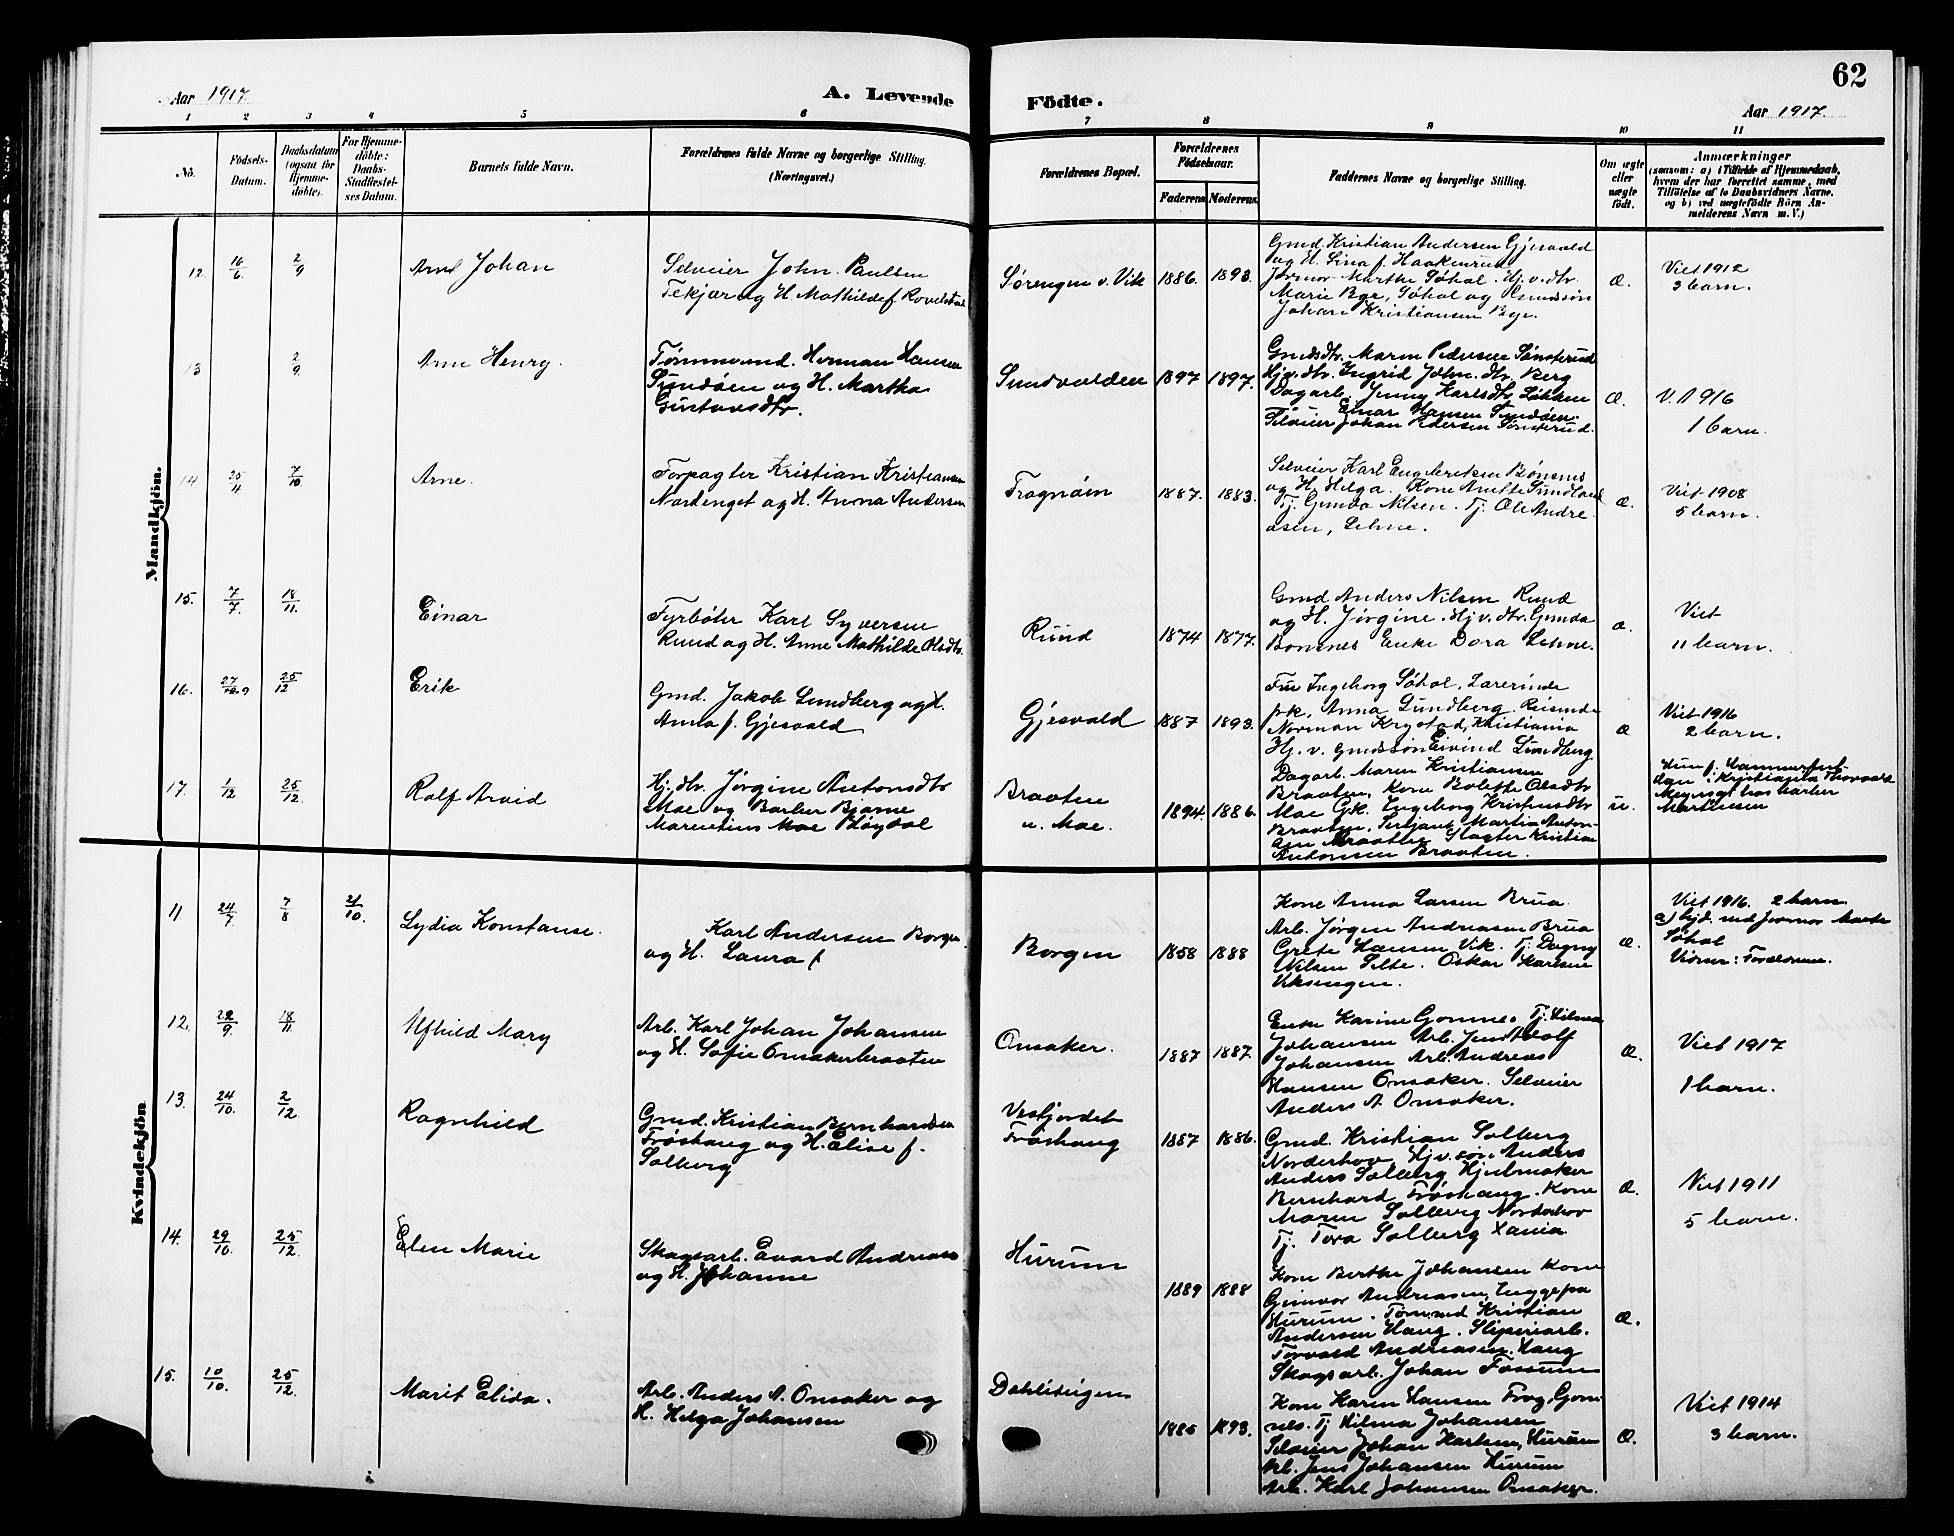 62
Aar 1917.
A. Levende
Födte.
Aar 1917.
1 2 3 4 5 6 7 8 9 10 11
No.
Födsels-
Datum.
Daabsdatum
(ogsaa for
Hjemme-
döbte).
For Hjemme-
döbte:
Daabs-
Stadfæstel-
ses Datum.
Barnets fulde Navn.
Forældrenes fulde Navne og borgerlige Stilling.
(Næringsvei.)
Forældrenes Bopæl.
Forældrenes
Födselsaar.
Faderens Moderens
Faddernes Navne og borgerlige Stilling.
Om ægte
eller
uægte
födt.
Anmærkninger
(saasom: a) i Tilfælde af Hjemmedaab,
hvem der har forrettet samme, med
Tilföielse af to Daabsvidners Navne,
og b) ved uægtefödte Börn An-
melderens Navn m. V.)
Mandkjön.
12. 16/6 2/9
Arne Johan
Selveier John Paulsen
Tekjær og H. Mathilde f. Rovelstad
Sørengen v. Vik 1886. 1893.
Gmd. Kristian Andersen Gjesvald
og H. Lina f. Haakenrud
Jormor Marthe Søhol. Hj. v. dtr.
Marie Bye, Søhol og
Johan Kristiansen Bye.
Æ.
Viet 1912
3 barn.
13 2/9
Arne Henry.
Tømmermd. Herman Hansen
Sundøen og H. Martha
Gustavsdtr.
Sundvolden 1897 1897.
Gmdsdtr. Maren Pedersen Sønsterud
Hjv. dtr. Ingrid John. dtr. Berg
Dagarb. Jenny Karlsdtr. Løkken
Einar Hansen Sundøen.
Selveier Johan Pedersen Sønsterud.
Æ.
V. 1916
1 barn.
14 25/4 7/10
Arne.
Forpagter Kristian Kristiansen
Nordenget og H. Anna Andersen
Frognøen 1887. 1883.
Selveier Karl Engebretsen Bønsnes
og H. Helga. Kone Anette Sundland
Tj. Gunda Nilsen. Tj. Ole Andre-
asen, Lehne.
Æ.
Viet 1908
5 barn.
15. 7/7. 18/11.
Einar
Fyrbøter Karl Syversen
Rund og H. Anne Mathilde Olsdtr.
Rund 1874 1877.
Gmd Anders Nilsen Rund
og H. Jørgine. Hjv. dtr. Gunda
Bønsnes Enke Dora Lehne.
Æ.
Viet
11 barn.
16. 27/9 25/12
Erik
Gmd. Jakob Sundberg og H.
Anna f. Gjesvald
Gjesvald 1887 1893.
Fru Ingeborg Søhol, Lærerinde
frk. Anna Lundberg. Reisende
Norman Krystad, Kristiania
Hj. v. Gmdssøn Eivind Lundberg
Æ
Viet 1916
2 barn.
17. 1/12 25/12.
Rolf Arvid
Hj. dtr. Jørgine Antonsdtr
Moe og Barber Bjarne
Marentius Moe Bløydal
Braaten
u. Moe. 1894. 1886.
Dagarb. Maren Kristiansen
Braaten, Kone Bolette Olsdtr
Moe Gk. Ingeborg Kristensdtr
Braaten. Serjant Martin Anton-
sen Braaten Slagter Kristian
Antonsen Braaten.
u.
Kristiania Thorvald
Meyersgt hos barber
Martinsen
Kvindekjön
11 24/7. 7/8 21/10.
Lydia Konstanse.
Karl Andersen Borgen
og H. Laura f.
Borgen 1858 1888
Kone Anna Larsen Brua.
Arb. Jørgen Andreassen Brua
Grete Hansen Vik. Tj. Dagny
Nilsen Selte. Oskar Karlsen
Viksengen.
Æ.
Viet 1916. 2 barn
a) hjd. ved Jormor Marte
Søhol
Vidner: Forældrene.
12. 22/9. 18/11.
Alfhild Mary
Arb. Karl Johan Johansen
og H. Sofie Onsakerbraaten
Onsaker. 1887 1887.
Enke Karine Gomnes Tj. Hilma
Johansen Arb. Jens Adolf
Johansen Arb. Andreas
Hansen Onsaker. Selveier
Anders A. Onsaker.
Æ.
Viet 1917
1 barn.
13. 24/10. 2/12.
Ragnhild
Gmd. Kristian Bernhardsen
Frøshaug og H. Elise f.
Solberg
Vestfjordet
Frøshaug 1887 1886.
Gmd. Kristian Solberg
Norderhov Hjv. søn Anders
Anders Solberg, Hjulmaker
Bernhard Frøshaug. Kone
Maren Solberg Norderhov
Tj. Tora Solberg Xania
Æ.
Viet 1911
5 barn.
14. 29/10. 25/12.
Elen Marie
Skogsarb. Edvard Andreasen
og H. Johanne
Hurum 1889 1888
Kone Berthe Johansen Kone
Gunvor Andreasen, Lyggepa
Hurum. Tømmermd Kristian
Andersen Haug. Sliperiarb.
Torvald Andreasen, Haug
Skogsarb. Johan Fossum
Æ.
15. 10/10. 25/12.
Marit Elida.
Arb. Anders A. Onsaker og
H. Helga Johansen
Dahlstingen 1885 1893.
Kone Karen Hansen Frog, Gom-
nes. Tj Hilma Johansen
Selveier Johan Karlsen, Hurum
Arb. Jens Johansen Hurum
Arb. Karl Johansen Onsaker.
Æ.
Viet 1914
3 barn.